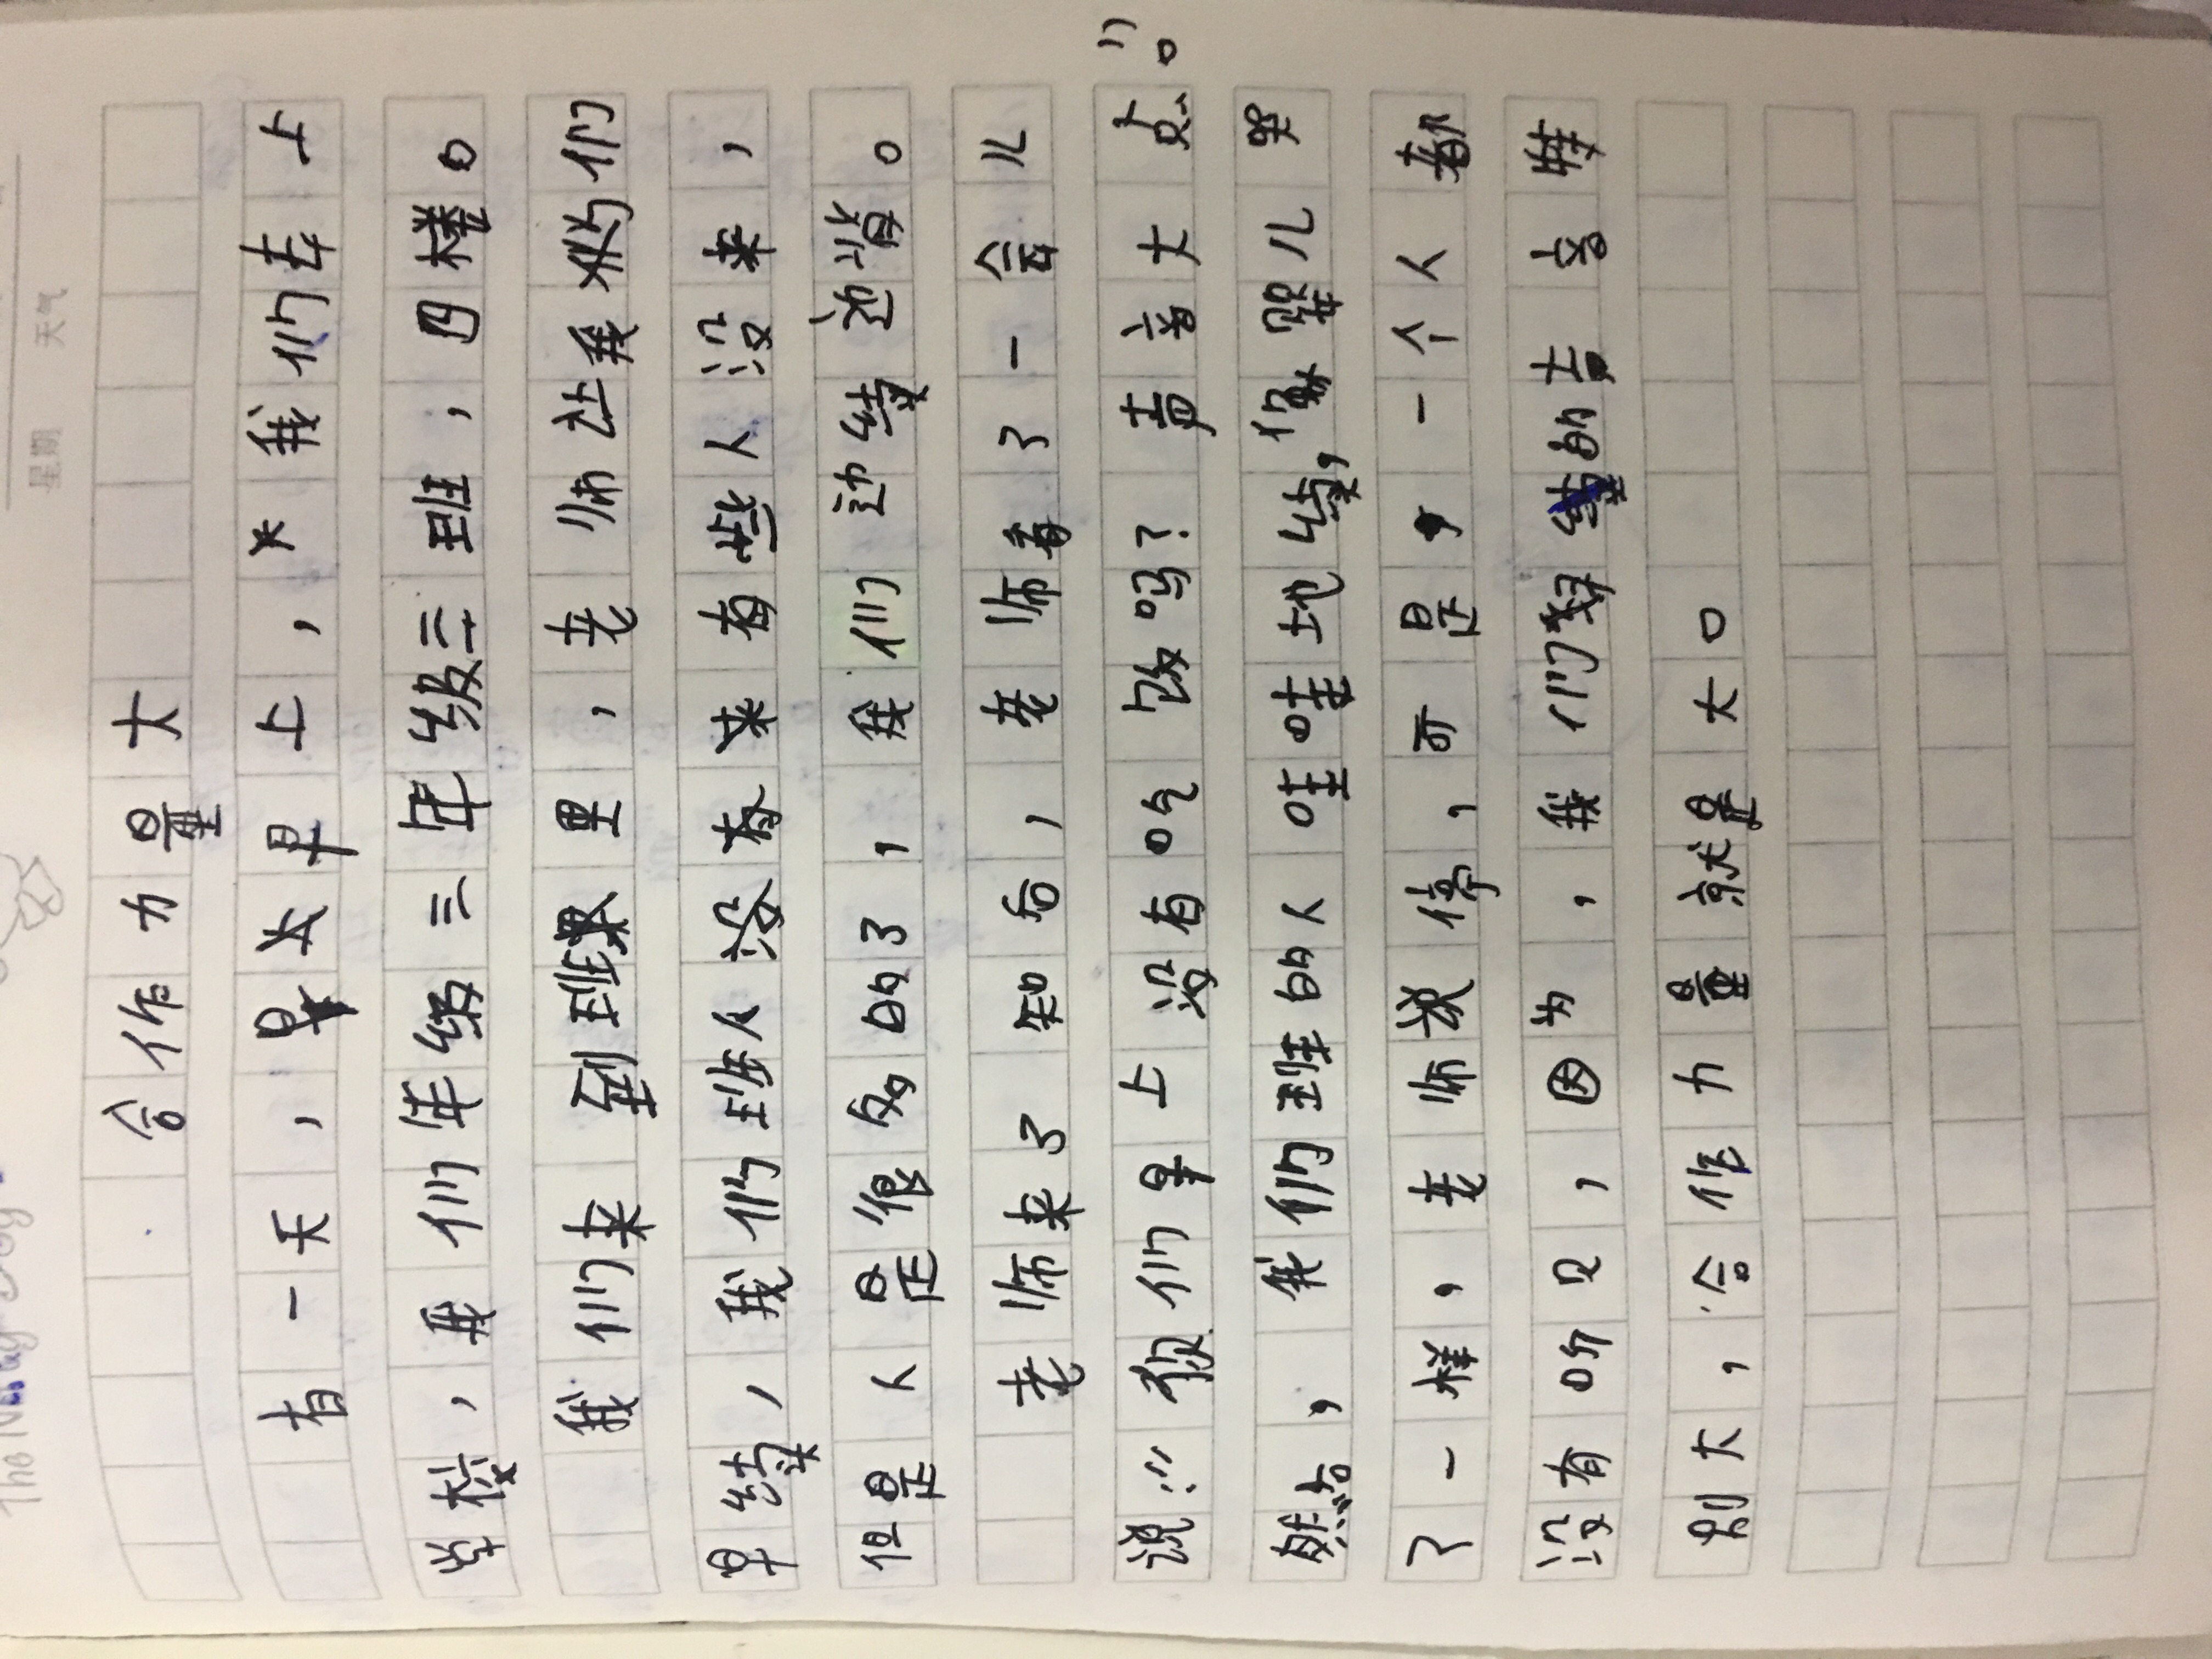 星期 天气
合作力量大
有一天,早上,我们去上
学校,我们年级三年级三班,四楼。
我们来到班里,老师让我们
早读,我们班人没有来有些人没来,
但是人是很多的了,我们边读边背。
老师来了知后,老师看了一会儿
说:“你们早上没有吃饭吗?声音大点。”
然后,我们班的人哇哇地读,像儿哭
了一样,老师说停,可是一个人都
没有听见,因为,我们读的声音特
别大,合作力量就是大。